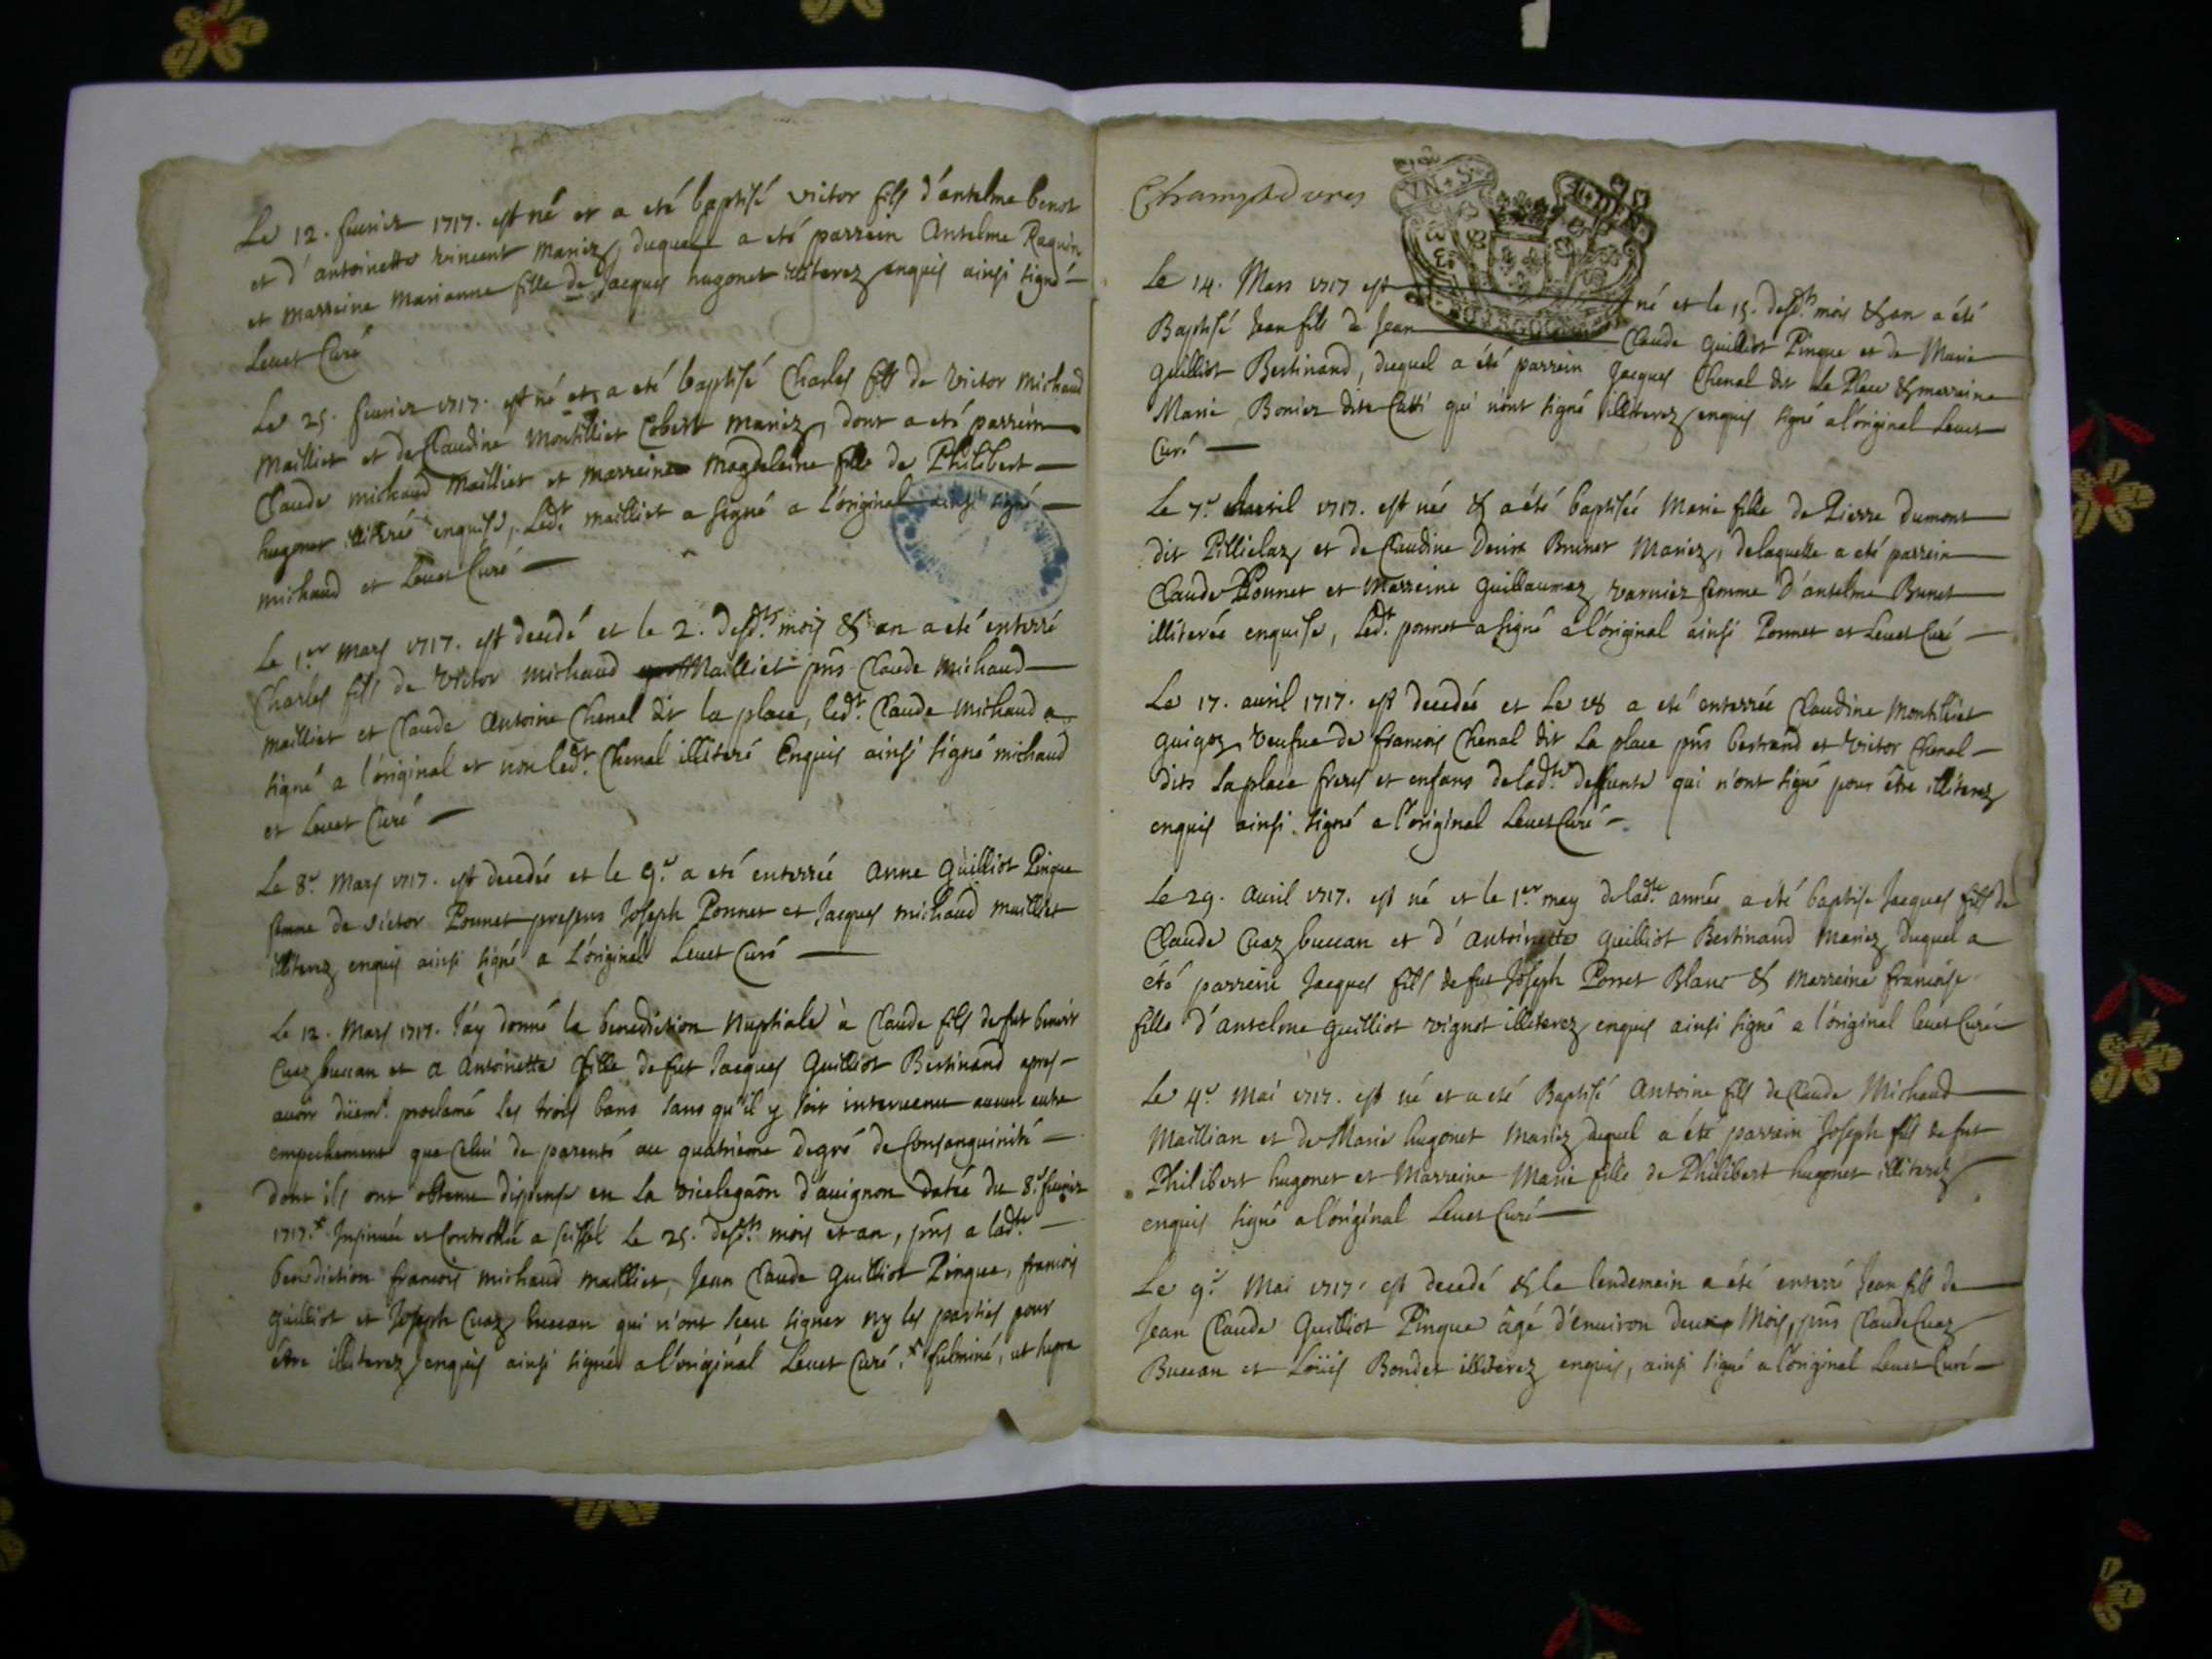 Le 12. feuvier 1717. est né et a eté baptisé victor fils d'antelme benot
et d'antoinette vincent mariez, duquel a eté parrein Antelme Raquin
et marreine marianne fille de Jacques hugonet illiterez enquis ainsi signé
Leuet Curé
Le 25. feuvier 1717. est né et a eté baptisé Charles fils de victor michaud
mailliet et de Claudine Montilliet Cobert mariez, dont a eté parrein
Claude michaud mailliet et marreine Magdeleine fille de Philibert
hugonet illiterée enquise, Ledt. mailliet a signé a l'original ainsi signé
michaud et Leuet Curé
Le 1.er mars 1717. est decedé et le 2. desdts. mois & an a eté enterré
Charles fils de victor michaud Mailliet pns Claude michaud
mailliet et Claude Antoine Chenal dit la place, ledt. Claude michaud a
signé a l'original et non ledt. Chenal illiteré Enquis ainsi signé michaud
et Leuet Curé
Le 8.e Mars 1717. est decedée et le 9.e a eté enterrée anne Guilliot Pingue
femme de victor Ponnet presens Joseph Ponnet et Jacques michaud mailliet
illiterez enquis ainsi signé a L'original Leuet Curé
Le 12. Mars 1717. J'ay donné la benediction Nuptiale à Claude fils de fut benoit
Cuaz buccan et a Antoinette fille de fut Jacques Guilliot Bertinand apres
auoir düemt. proclamé les trois bans sans qu'il y soit interuenu aucun autre
empechement que celui de parenté au quatrieme degré de Consanguinité
dont ils ont obtenu dispense en la vicelegaôn d'auignon datée du 8.e feuvier
1717.* Insinuée et Controllée a seissel le 25. desdts. mois et an, pns a ladte.
benediction francois michaud mailliet, Jean Claude Guilliot Pingue, francois
guilliot et Joseph Cuaz buccan qui n'ont sceu signer ny les parties pour
être illiterez enquis ainsi signés a l'original Leuet Curé.* fulminé, ut supra
Champdvres
Le 14. Mars 1717 est né et le 15. desdts. mois & an a été
Baptisé Jean fils de Jean Claude Guilliot Pingue et de Marie
Guilliot Bertinand, duquel a été parrein Jacques Chenal dit la Place & marreine
Marie Bonier dite Catti qui n'ont signé illiterez enquis signé a l'original Leuet
Curé
Le 7.e Avril 1717. est née & a été baptisée Marie fille de Pierre dumont
dit Pillielaz et de Claudine Brunet Mariez, de laquelle a eté parrein
Claude Ponnet et Marreine Guillaumaz varnier femme d'antelme Brunet
illiterée enquise, Ledt. ponnet a signé a l'original ainsi Ponnet et Leuet Curé
Le 17. auril 1717. est decedée et Le 18 a eté enterrée Claudine Montilliet
guigoz veufue de francois Chenal dit La place pns bertrand et victor Chenal
dits La place freres et enfans de ladte. deffunte qui n'ont signé pour être illiterez
enquis ainsi signé a l'original Leuet Curé
Le 29. Auril 1717. est né et le 1.er may de ladte. année a été baptisé Jacques fils de
Claude Cuaz buccan et d'Antoinette Guilliot Bertinand Mariez duquel a
été parrein Jacques fils de fut Joseph Ponnet Blanc & Marreine francoise
fille d'antelme guilliot vignot illiterez enquis ainsi signé a l'original leuet Curé
Le 4.e Mai 1717. est né et a eté Baptisé Antoine fils de Claude Michaud
Maillian et de Marie hugonet Mariez duquel a été parrein Joseph fils de fut
Philibert hugonet et Marreine Marie fille de Philibert hugonet illiterez
enquis signé a l'original Leuet Curé
Le 9.e Mai 1717. est decedé & le lendemain a été enterré Jean fils de
Jean Claude Guilliot Pingue âgé d'enuiron deux Mois, pns Claude Cuaz
Buccan et Loüis Bondet illiterez enquis, ainsi signé a l'original Leuet Curé